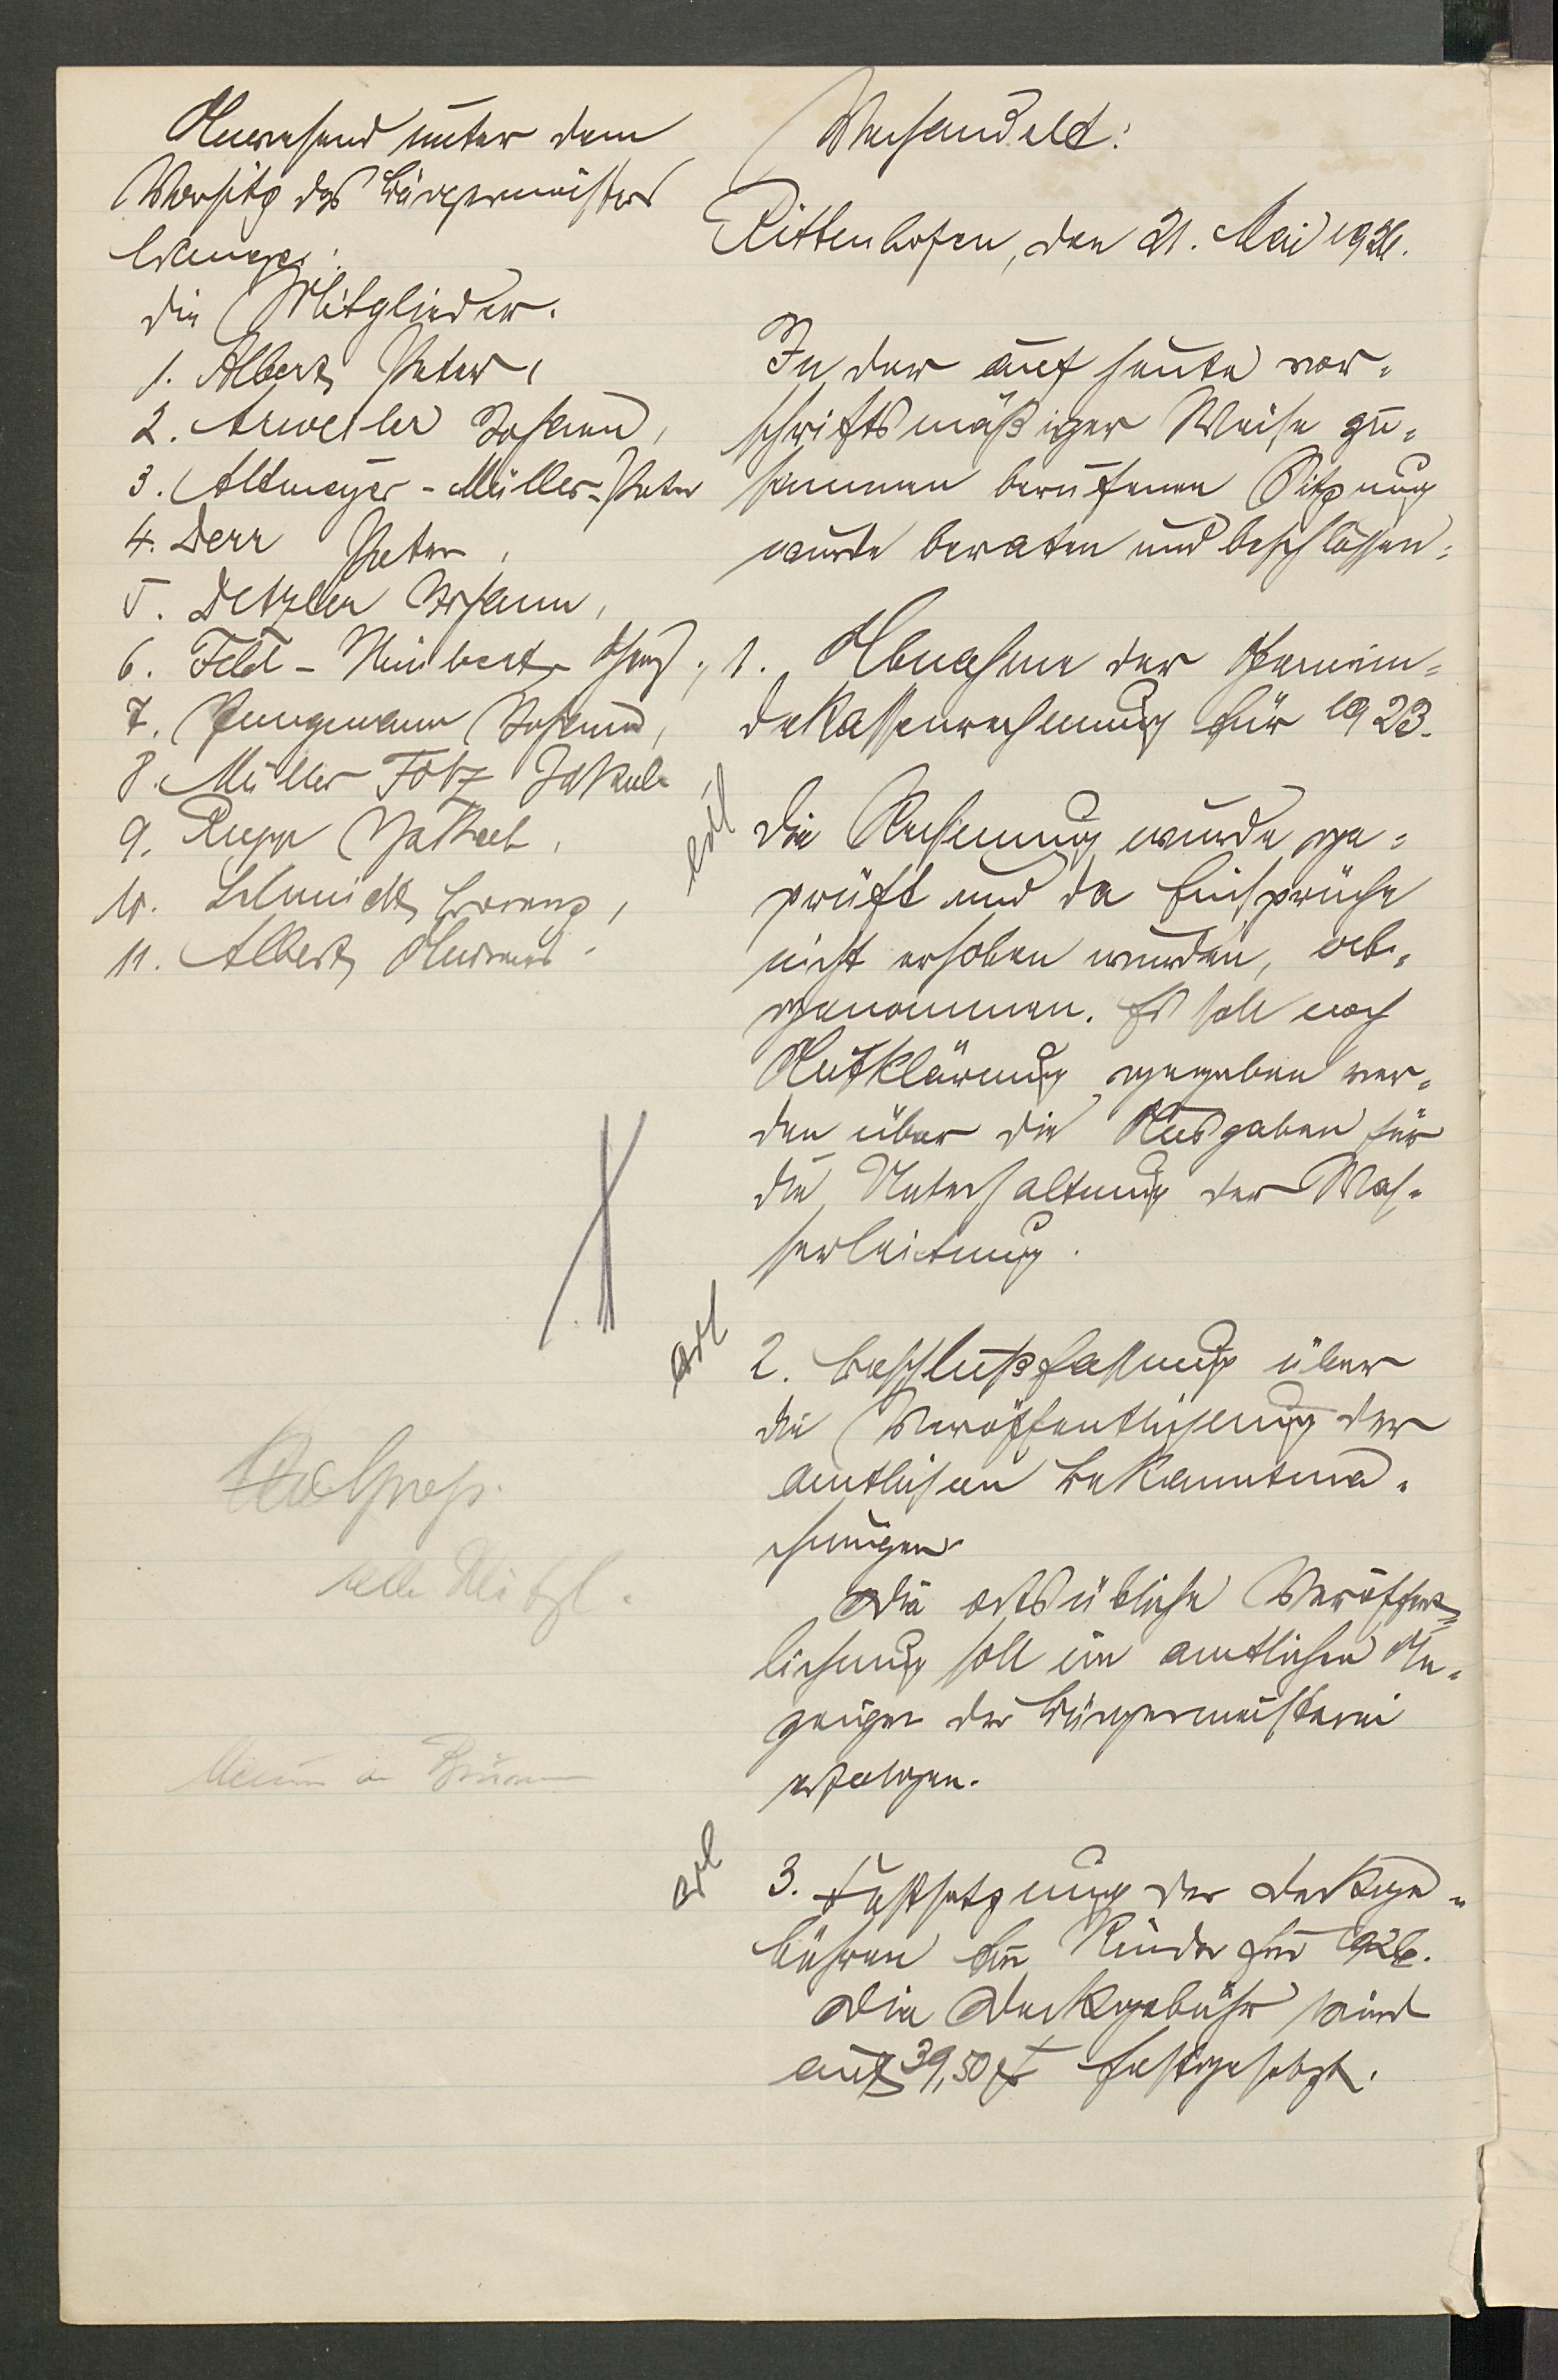 Anwesend unter dem
Vorsitz des Bürgermeisters
die Mitglieder.
1. Albert, Peter,
2. Arweiler Johann,
3. Altmeyer-Müller-Peter
4. Derr Peter,
5. Detzler Johann,
6. Feld-
7. Jungmann Johann,
8. Müller Fötz Jakob
9. Rupp Jakob,
10. Schmidt, Lorenz,
11. Albert,
Verhandelt:
Rittenhofen, den 21. Mai 1926.
In der auf heute vor-
schriftsmäßiger Weise zu-
sammen berufenen Sitzung
wurde beraten und beschlossen:
1. Abnahme der Gemein-
dekassenrechnung für 1923.
erl
Die Rechnung wurde ge-
prüft und da Einsprüche
nicht erhoben wurden, ab-
genommen. Es soll noch
Aufklärung gegeben wer-
den über die Ausgaben für
die Unterhaltung der Was-
serleitung.
erl
2. Beschlußfassung über
die Veröffentlichung der
amtlichen Bekanntma-
chungen
Die ortsübliche Veröffent-
lichung soll im amtlichen An-
zeiger der Bürgermeisterei
erfolgen.
erl
3. Festsetzung der Deckge-
bühren für Rinder für 1926.
Die Deckgebühr wird
auf 39,50 festgesetzt.